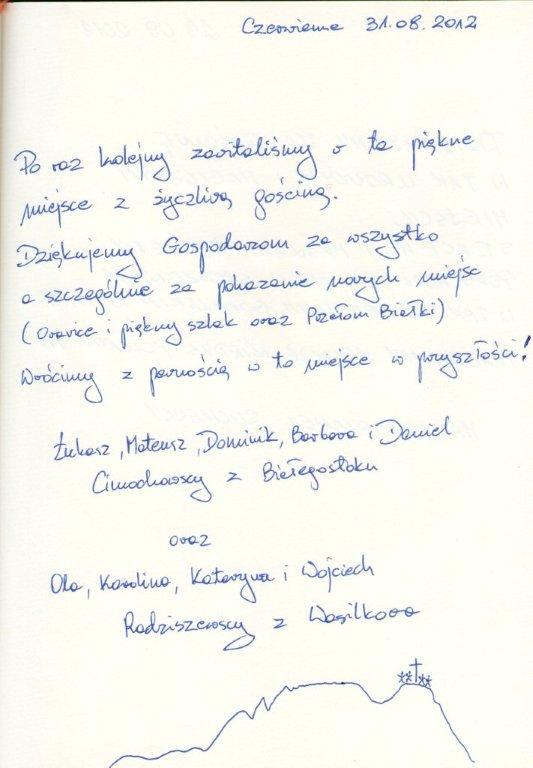 Czerwienne 31.08.2012
Po raz kolejny zawitaliśmy w to piękne
miejsce z życzliwą gościną.
Dziękujemy Gospodarzom za wszystko
a szczególnie za pokazanie nowych miejsc
(Oravice i piękny szlak oraz Przełom Białki)
Wrócimy z pewnością w to miejsce w przyszłości!
Łukasz, Mateusz, Dominik, Barbara i Daniel
Cimochowscy z Białegostoku
oraz
Ola, Karolina, Katarzyna i Wojciech
Radziszewscy z Wasilkowa